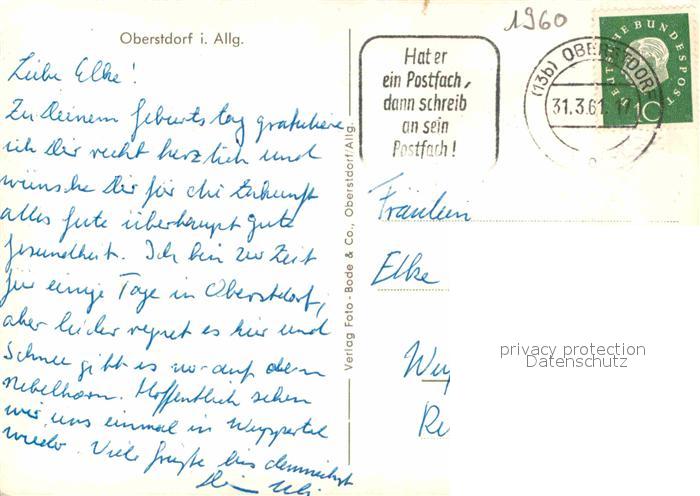 Oberstdorf i. Allg.
Liebe Elke!
Zu Deinem Geburtstag gratuliere
ich Dir recht herzlich und
wünsche Dir für die Zukunft
alles Gute überhaupt gute
Gesundheit. Ich bin zur Zeit
für einige Tage in Oberstdorf,
aber leider regnet es hier und
Schnee gibt es nur auf dem
Nebelhorn. Hoffentlich sehen
wir uns einmal in Wuppertal
wieder. Viele Grüße bis demnächst
Dein Uli
Verlag Foto-Bode & Co., Oberstdorf/Allg.
1960
Hat er
ein Postfach,
dann schreib
an sein
Postfach!
(13b) OBERSTDORF
31.3.61
DEUTSCHE BUNDESPOST
10
Fräulein
Elke
Wup
Re
privacy protection
Datenschutz